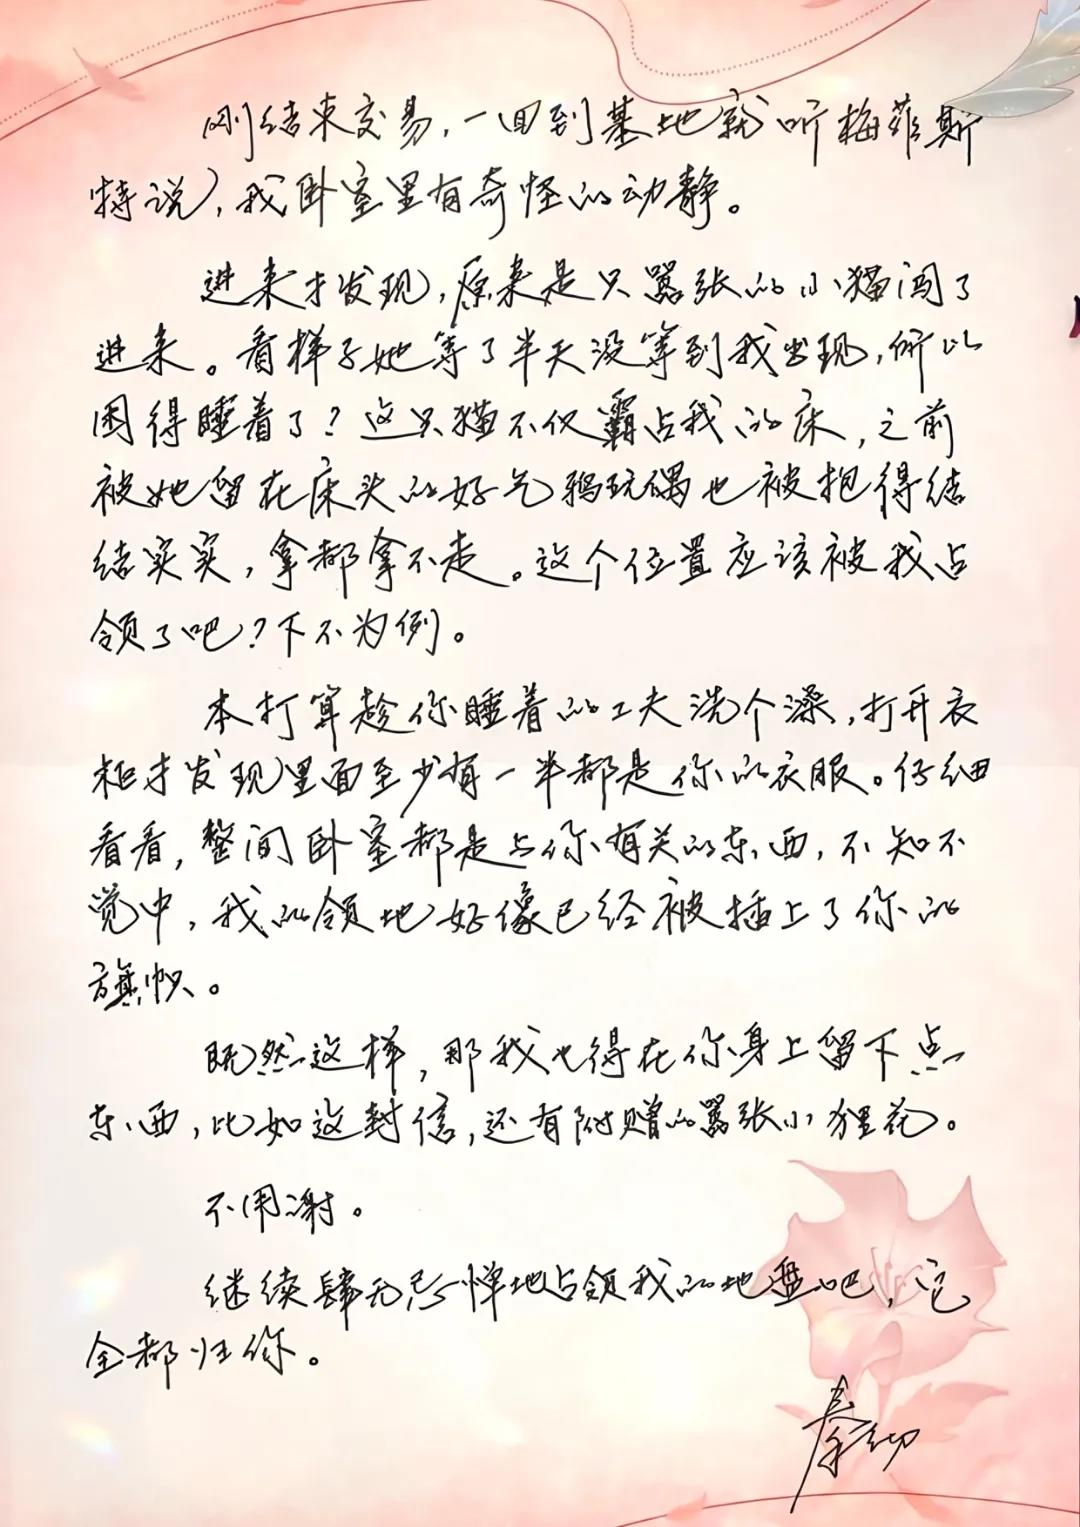 刚结束交易，一回到基地就听梅菲斯
特说，我卧室里有奇怪的动静。
进来才发现，原来是只嚣张的小猫闯了
进来。看样子她等了半天没等到我出现，所以
困得睡着了？这只猫不仅霸占我的床，之前
被她留在床头的好气鸦玩偶也被抱得结
结实实，拿都拿不走。这个位置应该被我占
领了吧？下不为例。
本打算趁你睡着的工夫洗个澡，打开衣
柜才发现里面至少有一半都是你的衣服。仔细
看看，整间卧室都是与你有关的东西，不知不
觉中，我的领地好像已经被插上了你的
旗帜。
既然这样，那我也得在你身上留下点
东西，比如这封信，还有附赠的嚣张小狸花。
不用谢。
继续肆无忌惮地占领我的地盘吧，它
全都归你。
秦彻